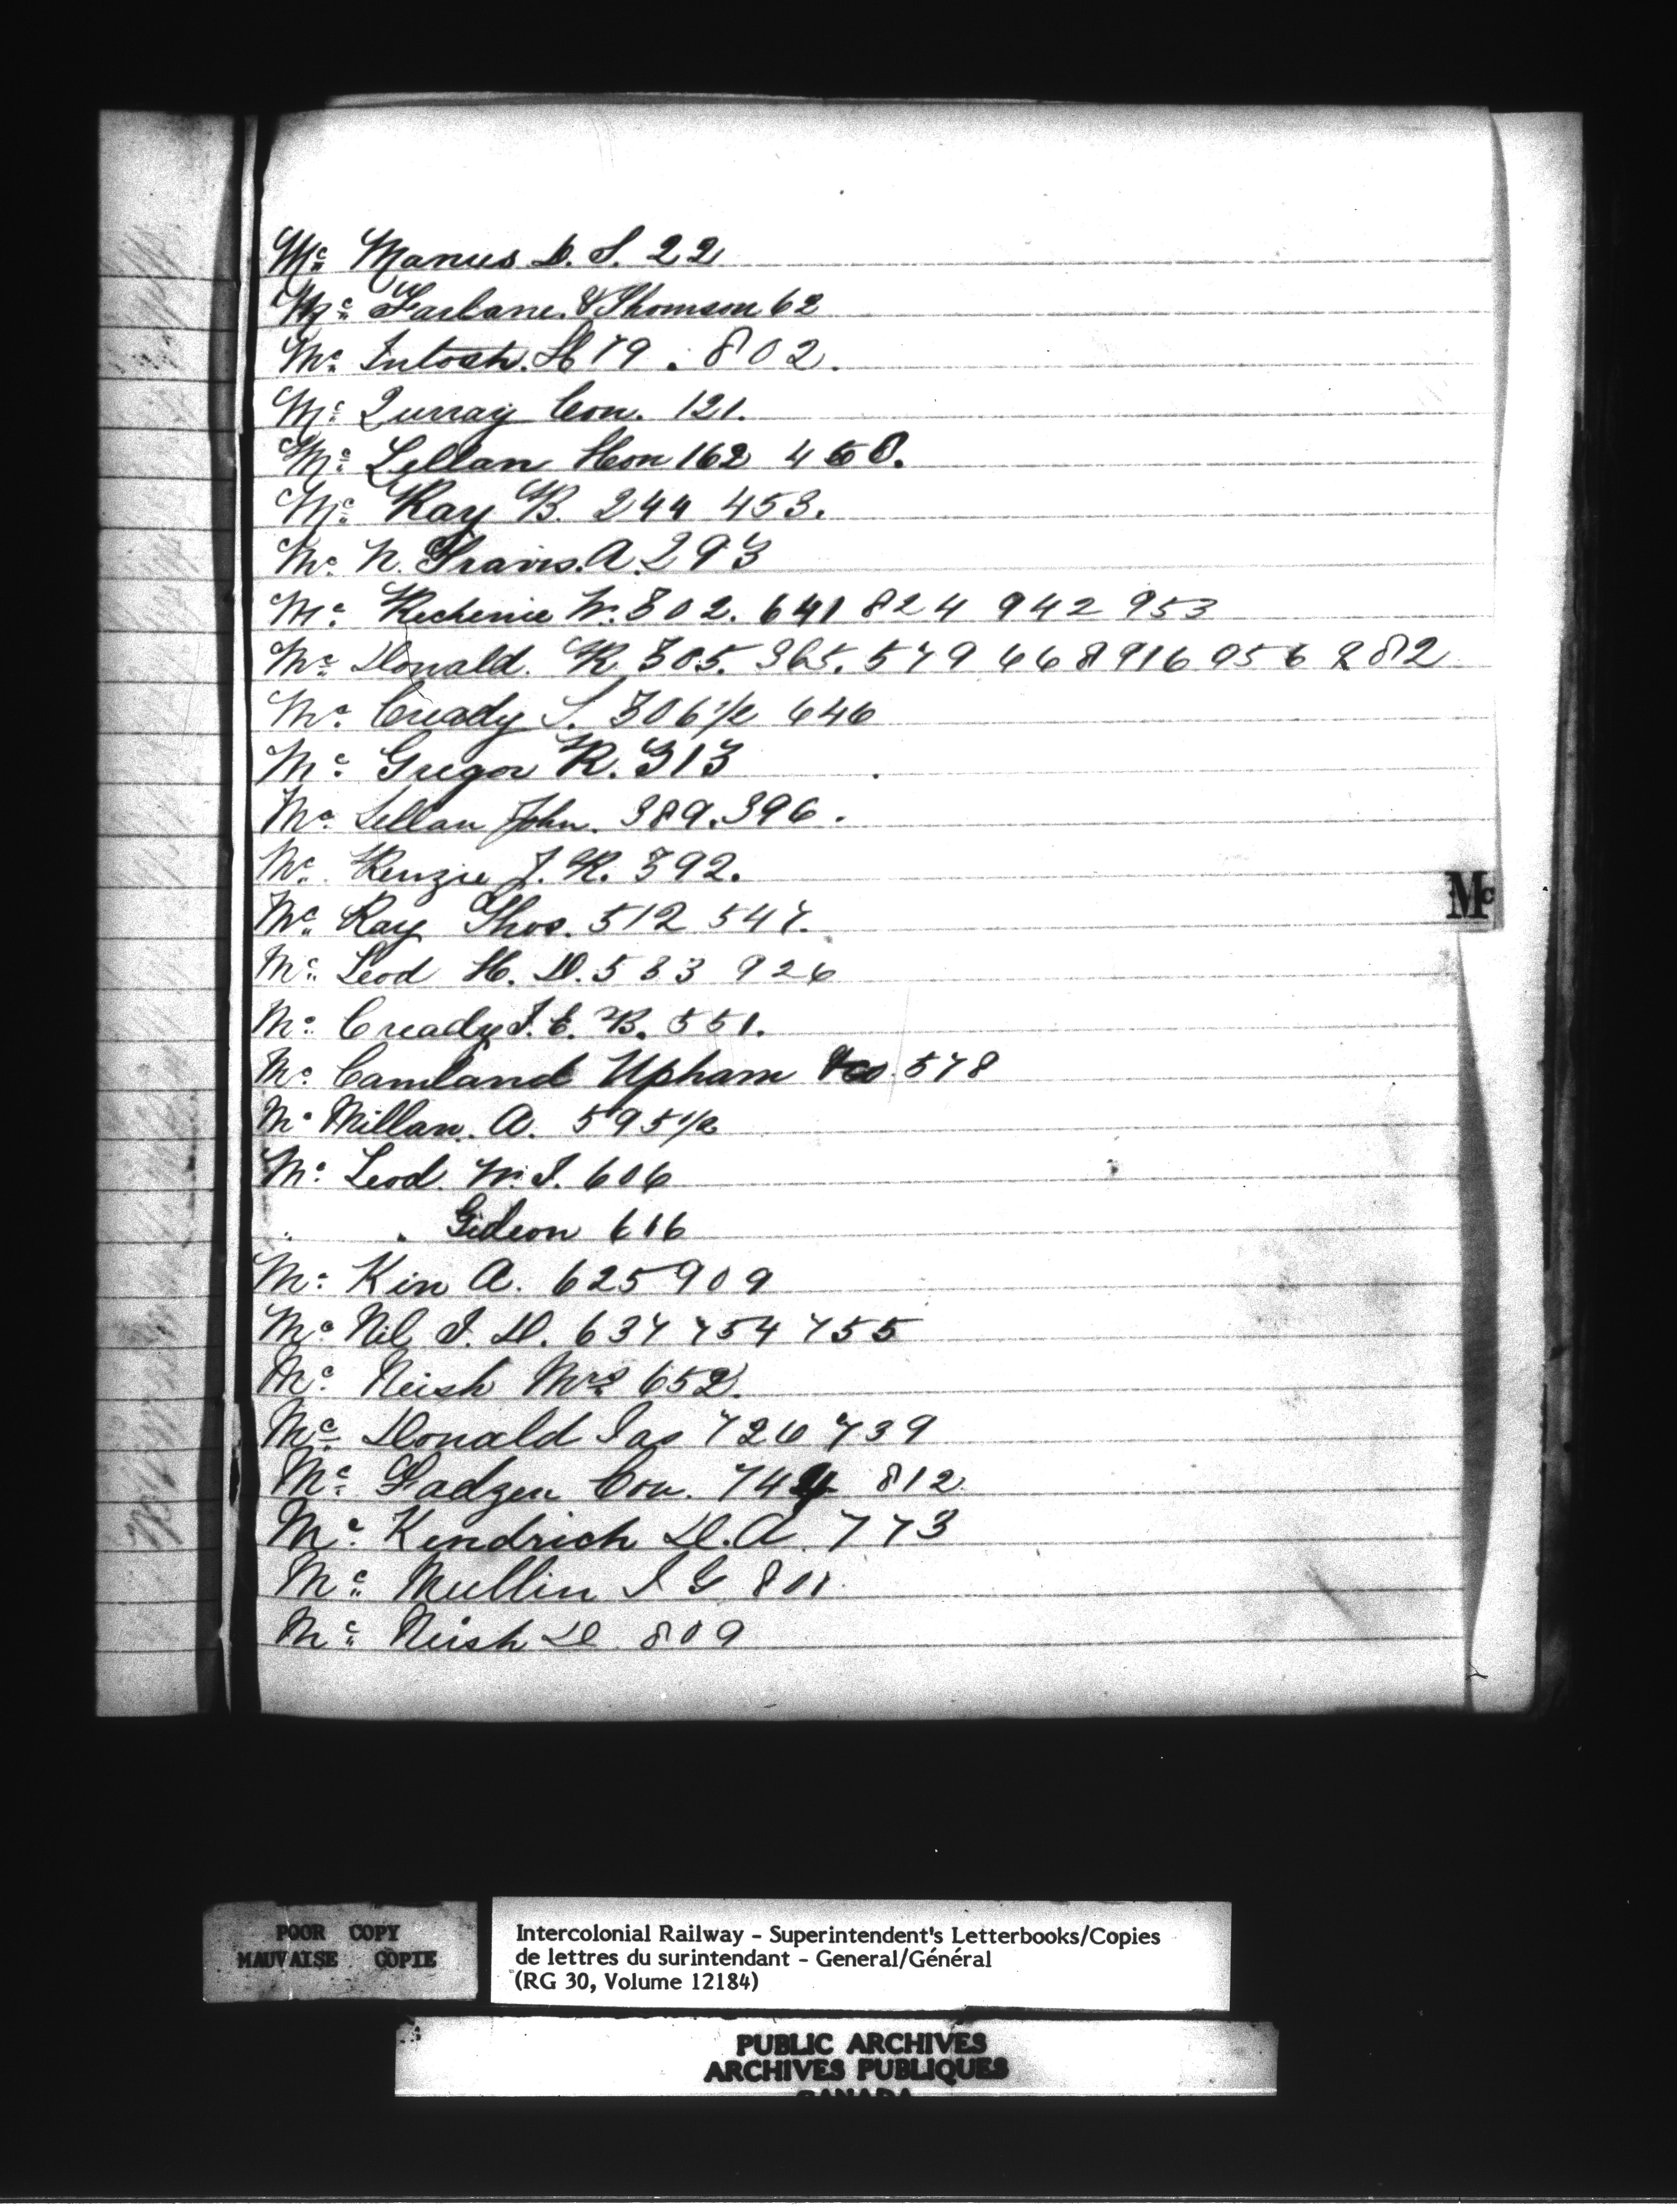 Mc Manus D. S. 22
Mc Farlane & Thomson 62
Mc Intosh. H 79. 802.
Mc Qurray Con. 121.
Mc Lellan Hon 162 458.
Mc Kay B. 244 453.
Mc N. Travis. A. 293
Mc Kechenie W. 302. 641 824 942 953
Mc Donald. R 305. 365. 579 668 916 956 282
Mc Cready S. 306 1/2 646
Mc Gregor R. 313
Mc Lellan John. 389. 396.
Mc Kenzie J. R. 392.
Mc Kay Thos. 512 547.
Mc Leod H. D. 533 926
Mc Cready J. E. B. 551.
Mc Camland Upham & Co 578
Mc Millan. A. 595 1/2
Mc Leod. W. J. 606
" " Gideon 616
Mc Kin A. 625 909
Mc Nil J. D. 637 754 755
Mc Neish Mrs 652.
Mc Donald Jas 726 739
Mc Fadzen Con. 744 812
Mc Kendrich D. A. 773
Mc Mullin J G 801
Mc Neish D 809
Mc
POOR COPY
MAUVAISE COPIE
Intercolonial Railway - Superintendent's Letterbooks/Copies
de lettres du surintendant - General/Général
(RG 30, Volume 12184)
PUBLIC ARCHIVES
ARCHIVES PUBLIQUES
CANADA